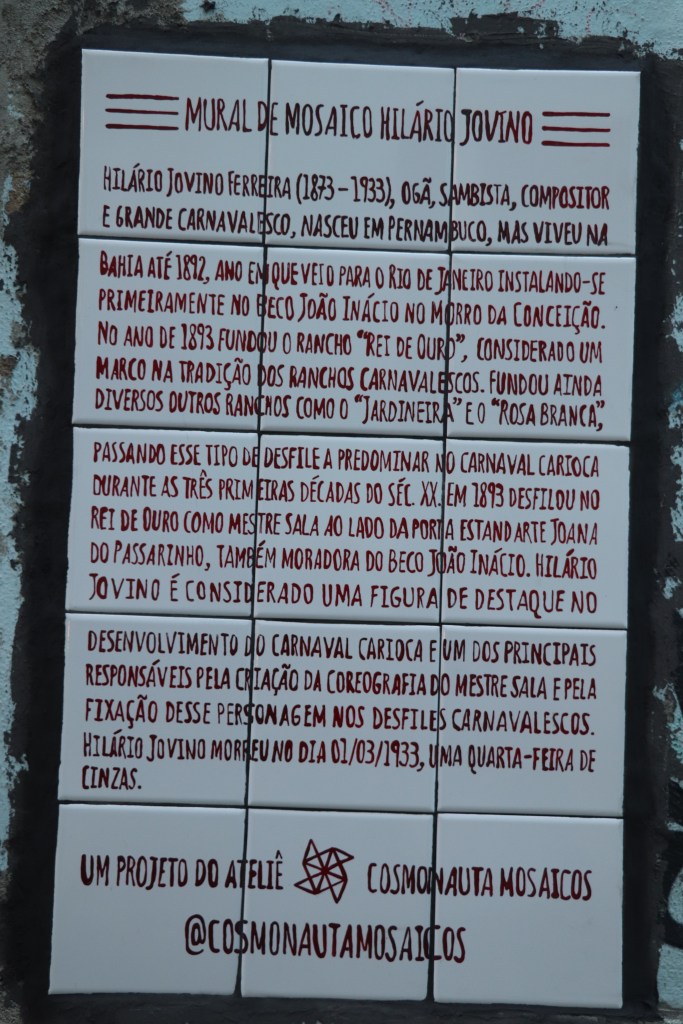 MURAL DE MOSAICO HILÁRIO JOVINO
HILÁRIO JOVINO FERREIRA (1873 – 1933), OGÃ, SAMBISTA, COMPOSITOR
E GRANDE CARNAVALESCO, NASCEU EM PERNAMBUCO, MAS VIVEU NA
BAHIA ATÉ 1892, ANO EM QUE VEIO PARA O RIO DE JANEIRO INSTALANDO-SE
PRIMEIRAMENTE NO BECO JOÃO INÁCIO NO MORRO DA CONCEIÇÃO.
NO ANO DE 1893 FUNDOU O RANCHO "REI DE OURO", CONSIDERADO UM
MARCO NA TRADIÇÃO DOS RANCHOS CARNAVALESCOS. FUNDOU AINDA
DIVERSOS OUTROS RANCHOS COMO O "JARDINEIRA" E O "ROSA BRANCA",
PASSANDO ESSE TIPO DE DESFILE A PREDOMINAR NO CARNAVAL CARIOCA
DURANTE AS TRÊS PRIMEIRAS DÉCADAS DO SÉC. XX. EM 1893 DESFILOU NO
REI DE OURO COMO MESTRE SALA AO LADO DA PORTA ESTANDARTE JOANA
DO PASSARINHO, TAMBÉM MORADORA DO BECO JOÃO INÁCIO. HILÁRIO
JOVINO É CONSIDERADO UMA FIGURA DE DESTAQUE NO
DESENVOLVIMENTO DO CARNAVAL CARIOCA E UM DOS PRINCIPAIS
RESPONSÁVEIS PELA CRIAÇÃO DA COREOGRAFIA DO MESTRE SALA E PELA
FIXAÇÃO DESSE PERSONAGEM NOS DESFILES CARNAVALESCOS.
HILÁRIO JOVINO MORREU NO DIA 01/03/1933, UMA QUARTA-FEIRA DE
CINZAS.
UM PROJETO DO ATELIÊ COSMONAUTA MOSAICOS
@COSMONAUTAMOSAICOS